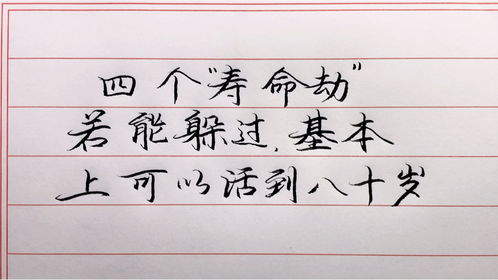 四个“寿命劫”
若能躲过,基本
上可以活到八十岁